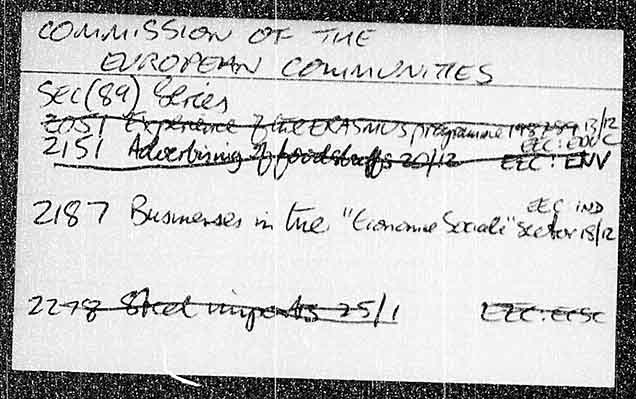 COMMISSION OF THE
EUROPEAN COMMUNITIES
SEC(89) Series
2051 Experience of the ERASMUS programme 1987-89 13/12
EEC: EDUC
2151 Advertising of foodstuffs 20/12 EEC: ENV
EEC IND
2187 Businesses in the "Economie Sociale" Sector 18/12
2278 Steel imports 25/1 EEC: ECSC